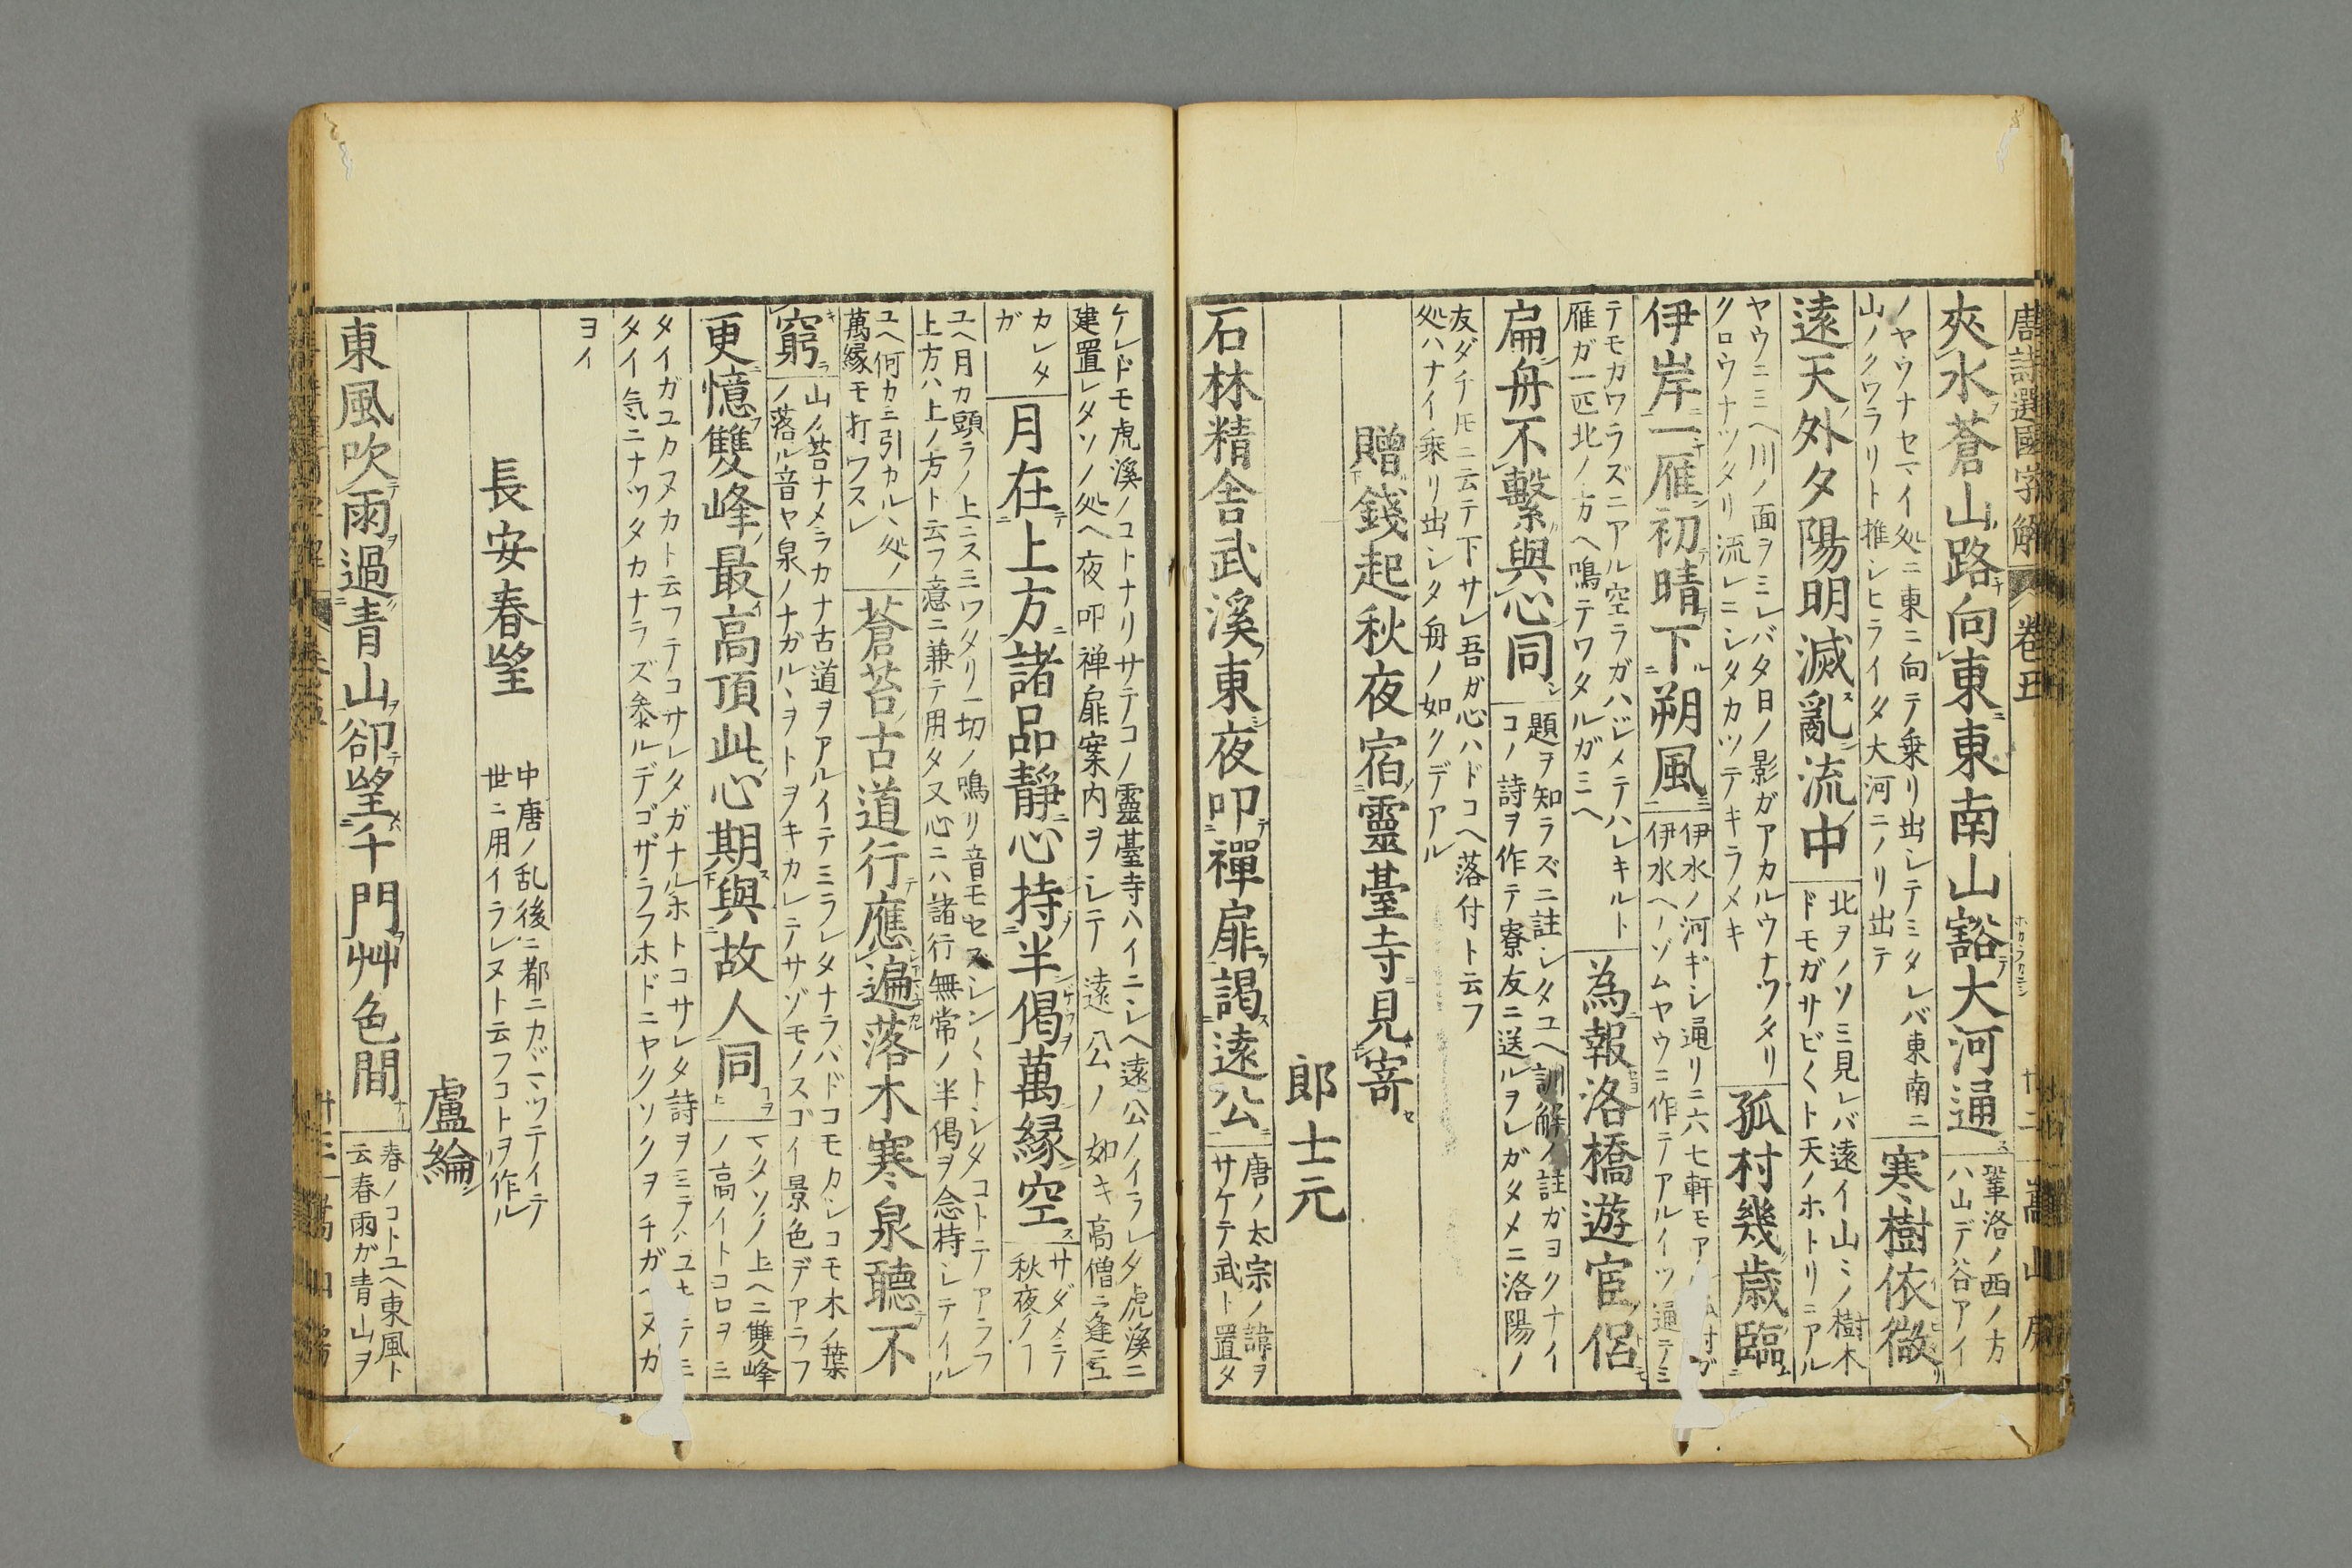 唐詩選國字解 卷五 廿二 嵩山房
夾水蒼山路向東東南山豁大河通
鞏洛ノ西ノ方
ハ山デ谷アイ
ノヤウナセマイ処ニ東ニ向テ乗リ出シテミタレバ東南ニ
山ノクワラリト推シヒライタ大河ニノリ出テ
寒樹依微
遠天外夕陽明滅亂流中
北ヲノソミ見レバ遠イ山〻ノ樹木
ドモガサビ〱ト天ノホトリニアル
ヤウニミヘ川ノ面ヲミレバタ日ノ影ガアカルウナツタリ
クロウナツタリ流レニシタカツテキラメキ
孤村幾歳臨
伊岸一雁初晴下朔風
伊水ノ河ギシ通リニ六七軒モア
伊水ヘノゾムヤウニ作テアルイツ通テミ
テモカワラズニアル空ラガハジメテハレキルト
雁ガ一匹北ノ方ヘ鳴テワタルガミヘ
為報洛橋遊宦侶
扁舟不繫與心同
題ヲ知ラズニ註シタユヘ訓解ノ註ガヨクナイ
コノ詩ヲ作テ寮友ニ送ルヲレガタメニ洛陽ノ
友ダチ𪜈ニ云テ下サレ吾ガ心ハドコヘ落付ト云フ
処ハナイ乗リ出シタ舟ノ如クデアル
贈錢起秋夜宿靈臺寺見寄
郎士元
石林精舍武溪東夜叩禪扉謁遠公
唐ノ太宗ノ諱ヲ
サケテ武ト置タ
ケレドモ虎溪ノコトナリサテコノ靈臺寺ハイニシヘ遠公ノイラレタ虎溪ニ
建置レタソノ処ヘ夜叩禅扉案内ヲシテ遠公ノ如キ高僧ニ逢ニユ
カレタ
ガ
月在上方諸品靜心持半偈萬縁空
サダメテ
秋夜ノヿ
ユヘ月カ頭ラノ上ニスミワタリ一切ノ鳴リ音モセズシン〱トシタコトテアラフ
上方ハ上ノ方ト云フ意ニ兼テ用タ又心ニハ諸行無常ノ半偈ヲ念持シテイル
ユヘ何カニ引カルヽ処ノ
萬縁モ打ワスレ
蒼苔古道行應遍落木寒泉聽不
窮
山ノ苔ナメラカナ古道ヲアルイテミラレタナラバドコモカシコモ木ノ葉
ノ落ル音ヤ泉ノナガルヽヲトヲキカレテサゾモノスゴイ景色デアラフ
更憶雙峰最高頂此心期與故人同
マタソノ上ヘニ雙峰
ノ高イトコロヲミ
タイガユカヌカト云フテコサレタガナルホトコサレタ詩ヲミテハユキテミ
タイ気ニナツタカナラズ参ルデゴザラフホドニヤクソクヲチガヘヌガ
ヨイ
長安春望
中唐ノ乱後ニ都ニカヾマツテイテ
世ニ用イラレヌト云フコトヲ作ル
盧綸
東風吹雨過青山卻望千門艸色間
春ノコトユヘ東風ト
云春雨ガ青山ヲ
廿三